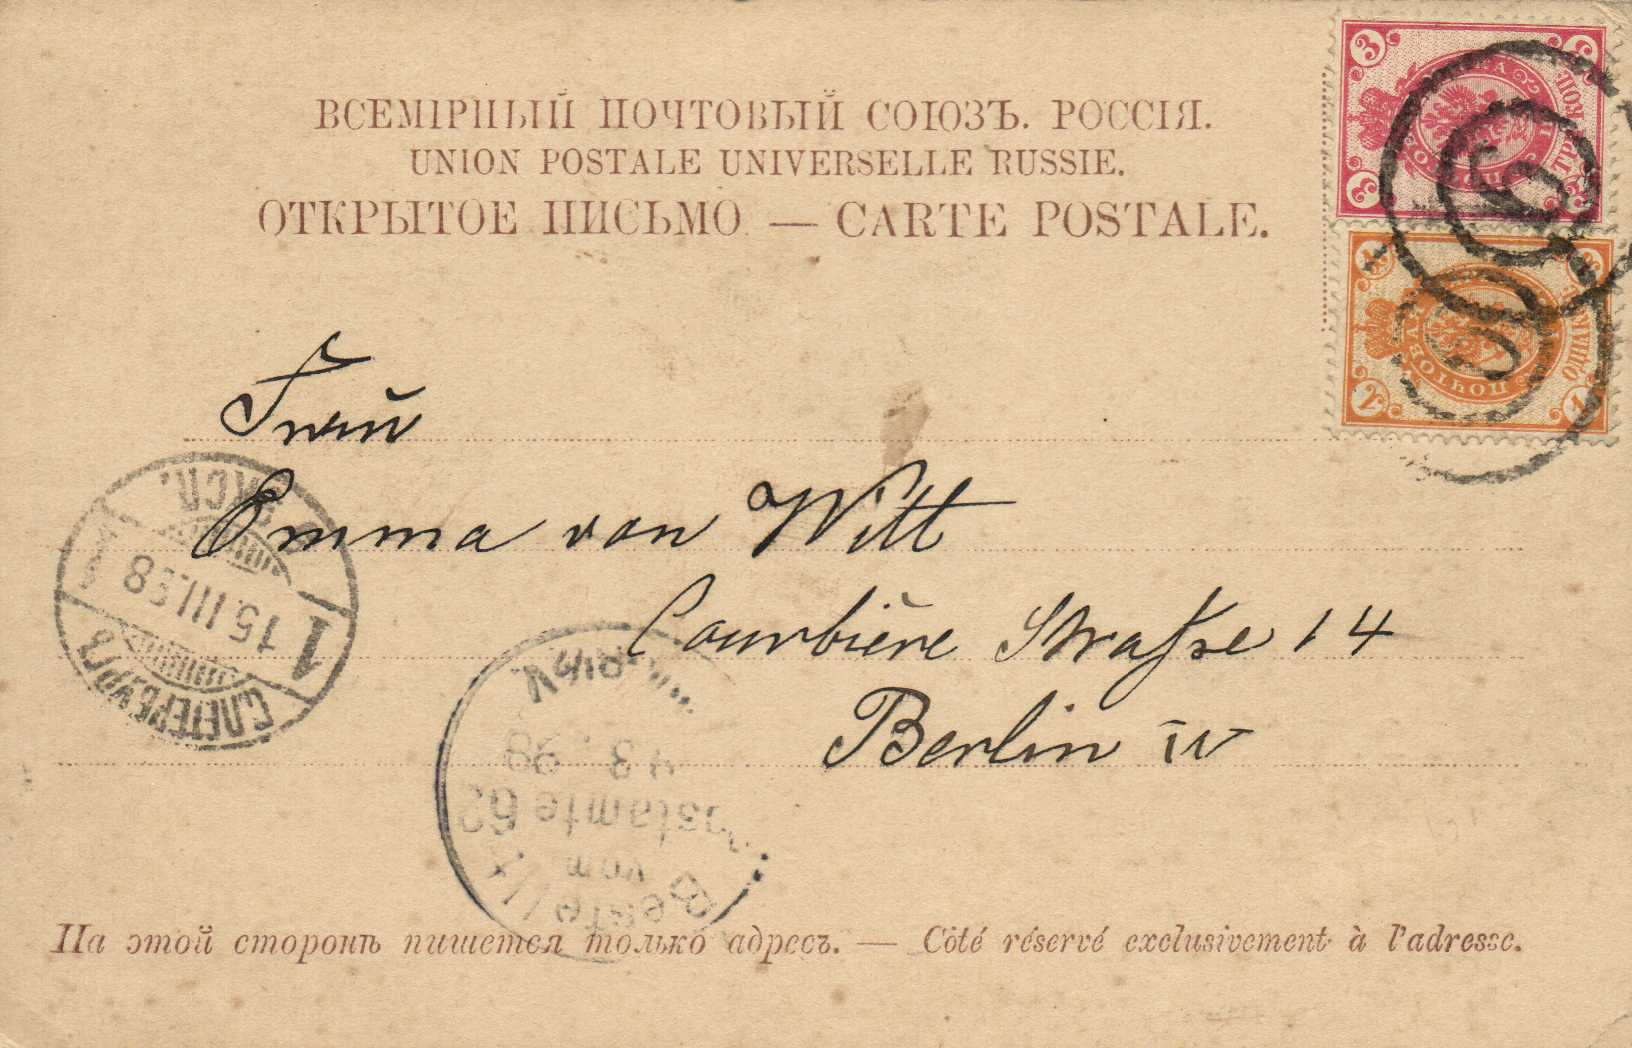 ВСЕМІРНЫЙ ПОЧТОВЫЙ СОЮЗЪ. РОССІЯ.
UNION POSTALE UNIVERSELLE RUSSIE.
ОТКРЫТОЕ ПИСЬМО — CARTE POSTALE.
3
ТРИ КОП.
1
Frau
Emma von Witt
Courbière Straße 14
Berlin W
С.ПЕТЕРБУРГЪ
1
15.III.98
ЭКСП.
Bestellt
vom
Postamte 62
На этой сторонѣ пишется только адресъ. — Côté réservé exclusivement à l'adresse.